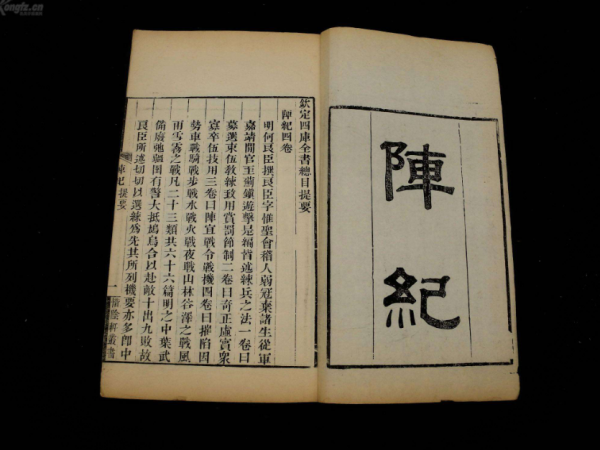 陣紀
欽定四庫全書總目提要
陣紀四卷
明何良臣撰良臣字惟聖會稽人弱冠棄諸生從軍
嘉靖間官至薊鎮遊擊是編皆述練兵之法一卷曰
募選束伍教練致用賞罰節制二卷曰奇正虛實衆
寡卒伍技用三卷曰陣宜戰令戰機四卷曰摧陷因
勢車戰騎戰步戰水戰火戰夜戰山林谷澤之戰風
雨雪霧之戰凡二十三類共六十六篇明之中葉武
備廢弛疆圉有警大抵鳩烏合以赴敵十出九敗故
良臣所述切切以選練爲先其所列機要亦多卽中
陣紀提要
一
惜陰軒叢書
Kongfz.cn